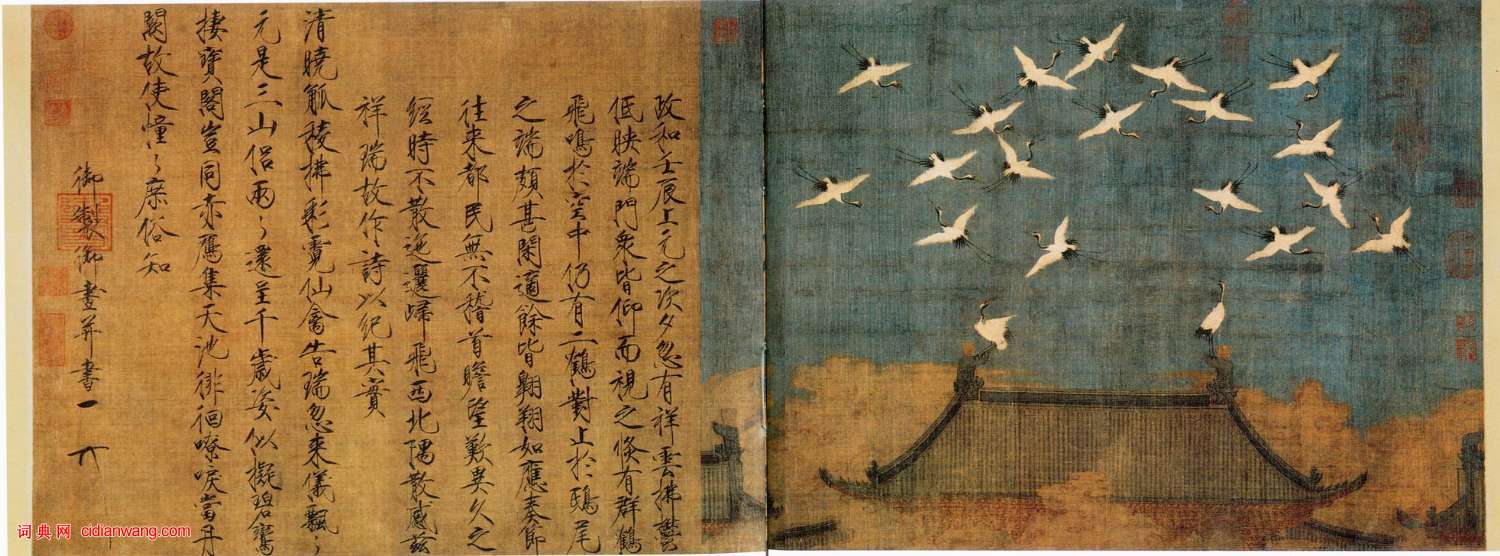 政和壬辰上元之次夕忽有祥雲拂鬱
低映端門衆皆仰而視之倏有群鶴
飛鳴於空中仍有二鶴對止於鴟尾
之端頗甚閑適餘皆翺翔如應奏節
往來都民無不稽首瞻望歎異久之
經時不散迤邐歸飛西北隅散感茲
祥瑞故作詩以紀其實
清曉觚稜拂彩霓仙禽告瑞忽來儀飄〻
元是三山侣兩〻還呈千歲姿似擬碧鸞
棲寶閣豈同赤鴈集天池徘徊嘹唳當丹
闕故使憧〻庶俗知
御製御畫并書
词典网 cidianwang.com